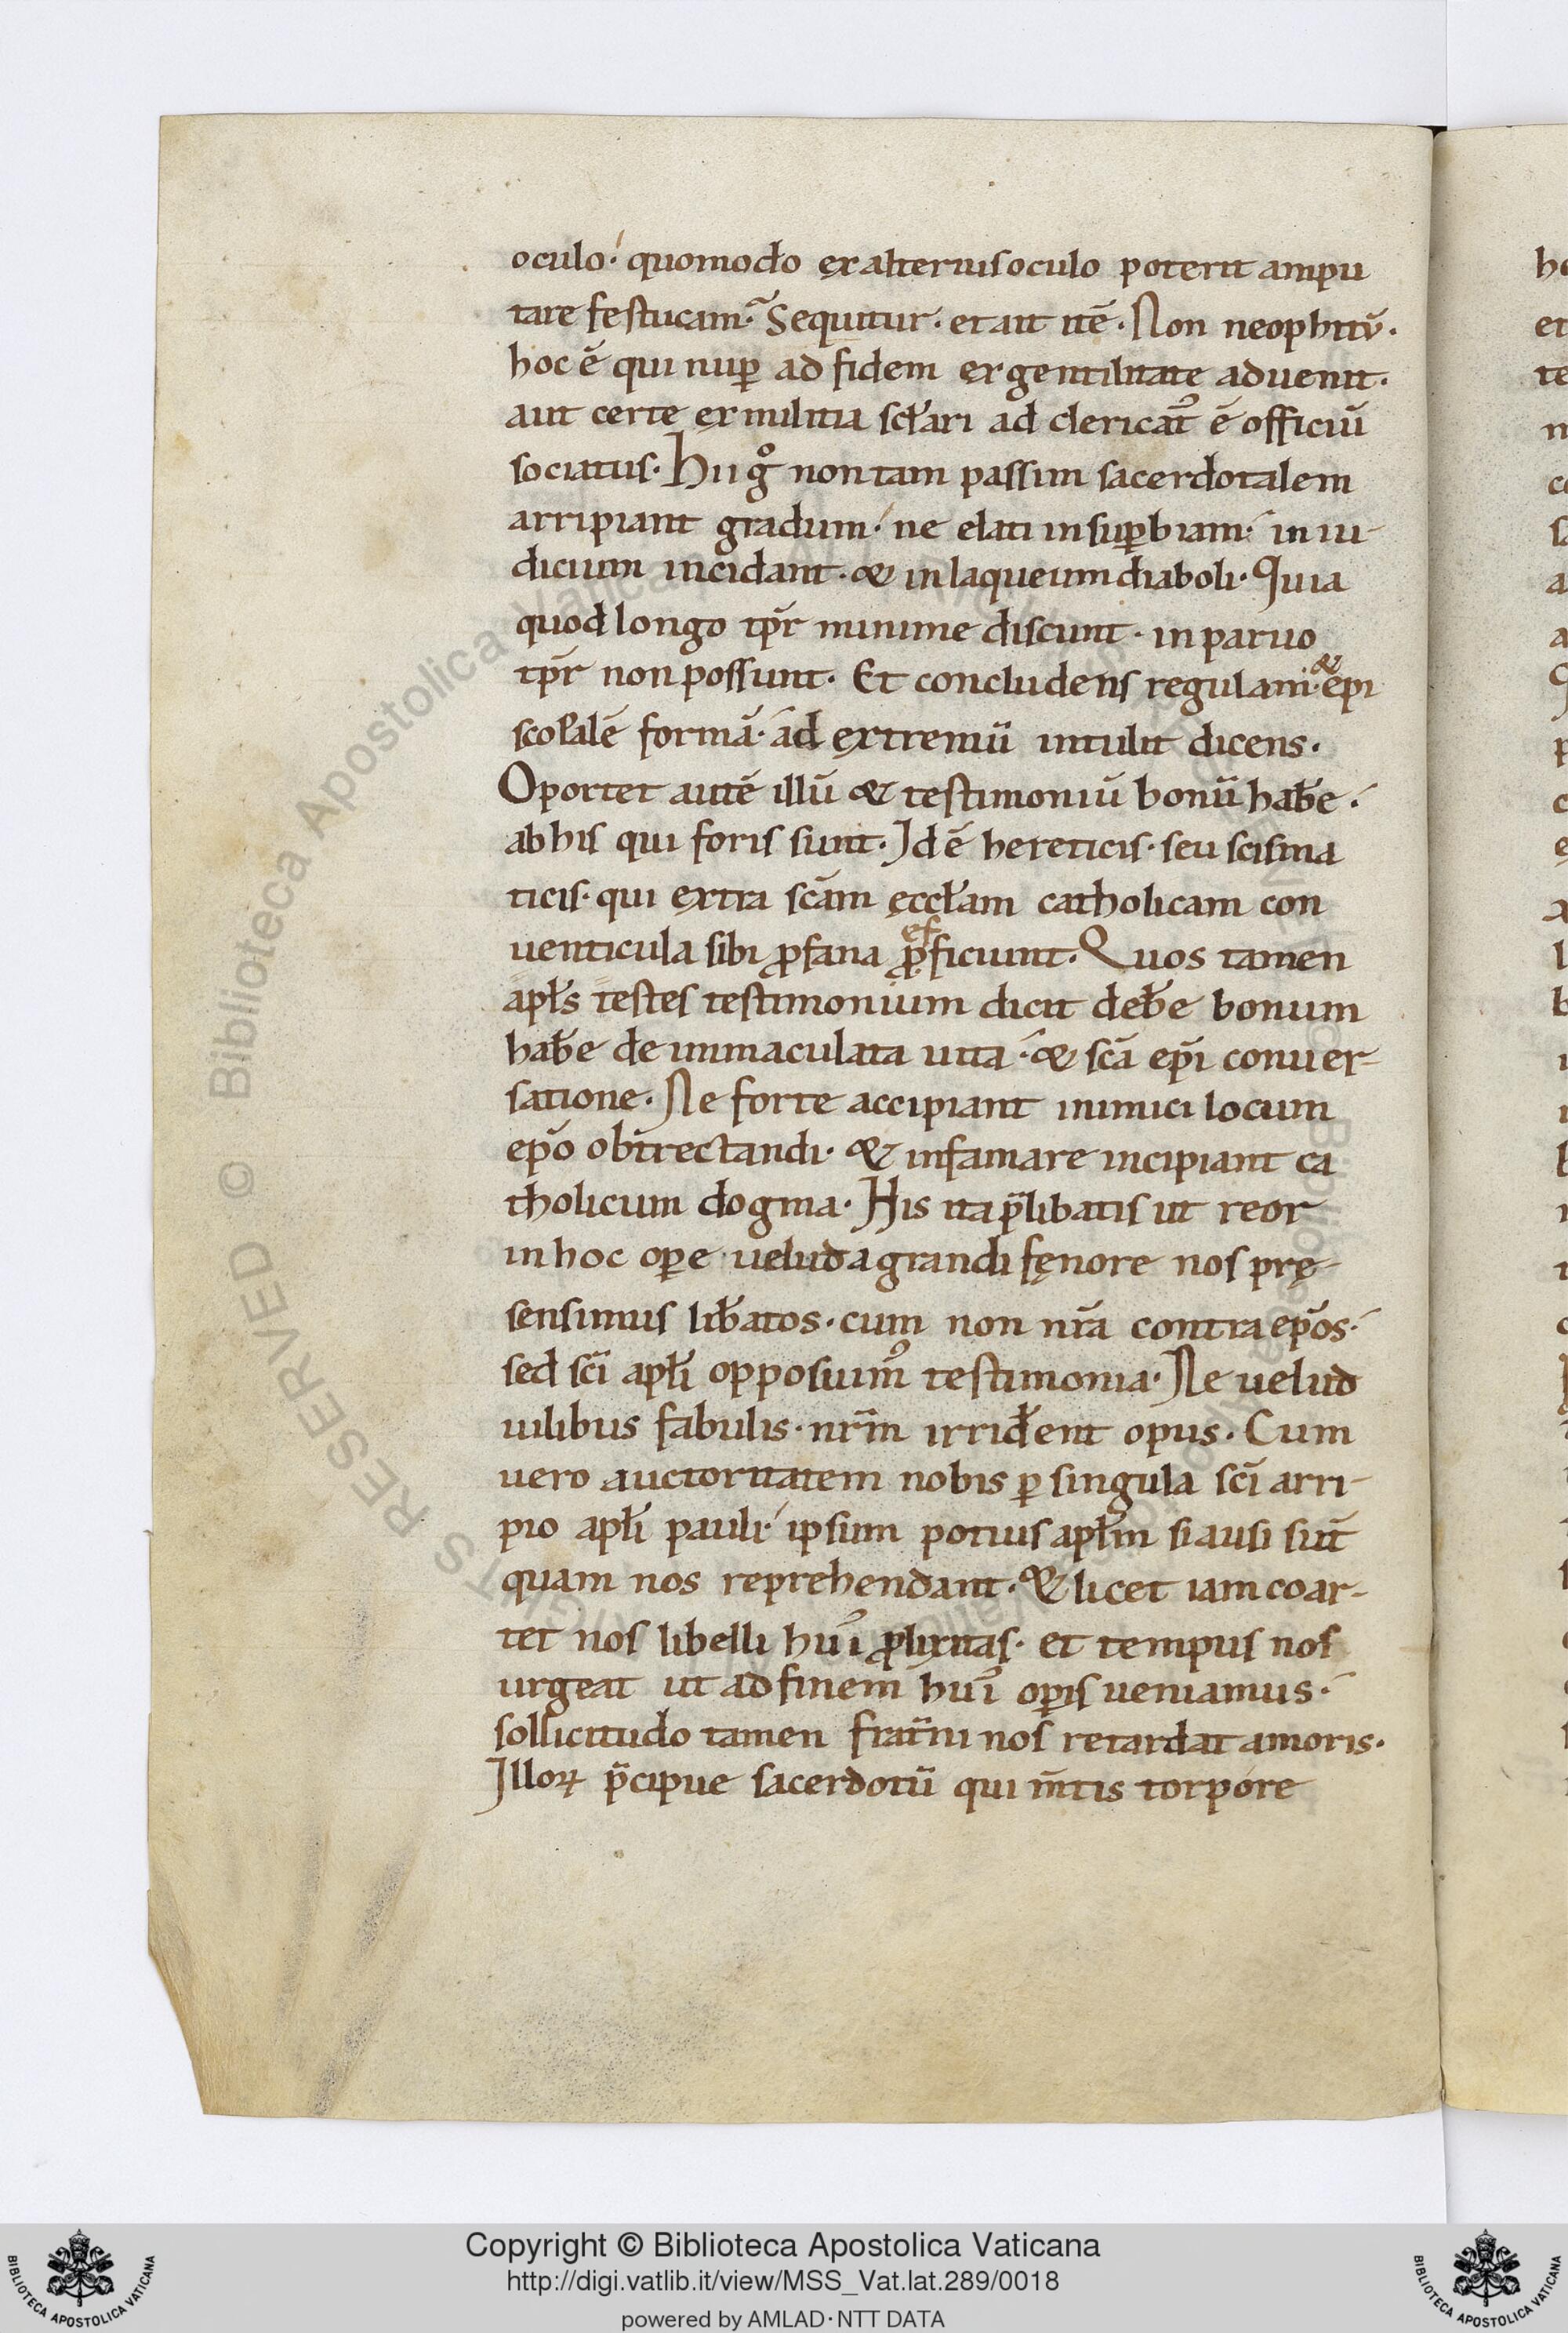 oculo· quomodo ex alterius oculo poterit ampu
tare festucam· Sequitur· et ait itē· Non neophitū·
hoc ē qui nuꝑ ad fidem ex gentilitate aduenit·
aut certe ex militia scłari ad clericat᷒ ē officiū
sociatus· Hii gͦ non tam passim sacerdotalem
arripiant gradum· ne elati in suꝑbiam· in iu-
dicium incidant· & in laqueum diaboli· Quia
quod longo tp̄r minime discunt· in paruo
tp̄r non possunt· Et concludens regulam· & epi
scopalē formā· ad extremū intulit dicens·
Oportet autē illū & testimoniū bonū hab̄e·
ab his qui foris sunt· Id ē hereticis· seu scisma
ticis· qui extra scām ęccłam catholicam con
uenticula sibi ꝓfana ꝓ ef ficiunt· Quos tamen
apłs testes testimonium dicit deb̄e bonum
hab̄e de immaculata uita· & scā ep̄i conuer-
satione· Ne forte accipiant inimici locum
ep̄o obtrectandi· & infamare incipiant ca
tholicum dogma· His ita p̄libatis ut reor
in hoc oꝑe uelud a grandi fęnore nos prę-
sensimus lib̄atos· cum non nr̄a contra ep̄os·
sed scī apłi opposuim᷒ testimonia· Ne uelud
uilibus fabulis· nr̄m irrid̄ent opus· Cum
uero auctoritatem nobis ꝑ singula scī arri-
pio apłi pauli· ipsum potius apłm si ausi sūt
quam nos reprehendant· & licet iam coar-
tet nos libelli hu᷒i ꝓlixitas· et tempus nos
urgeat ut ad finem hu᷒i oꝑis ueniamus·
sollicitudo tamen frat̄ni nos retardat amoris·
Illoꝝ p̄cipue sacerdotū qui m̄tis torpore
Copyright © Biblioteca Apostolica Vaticana
http://digi.vatlib.it/view/MSS_Vat.lat.289/0018
powered by AMLAD·NTT DATA
BIBLIOTECA APOSTOLICA VATICANA
BIBLIOTECA APOSTOLICA VATICANA